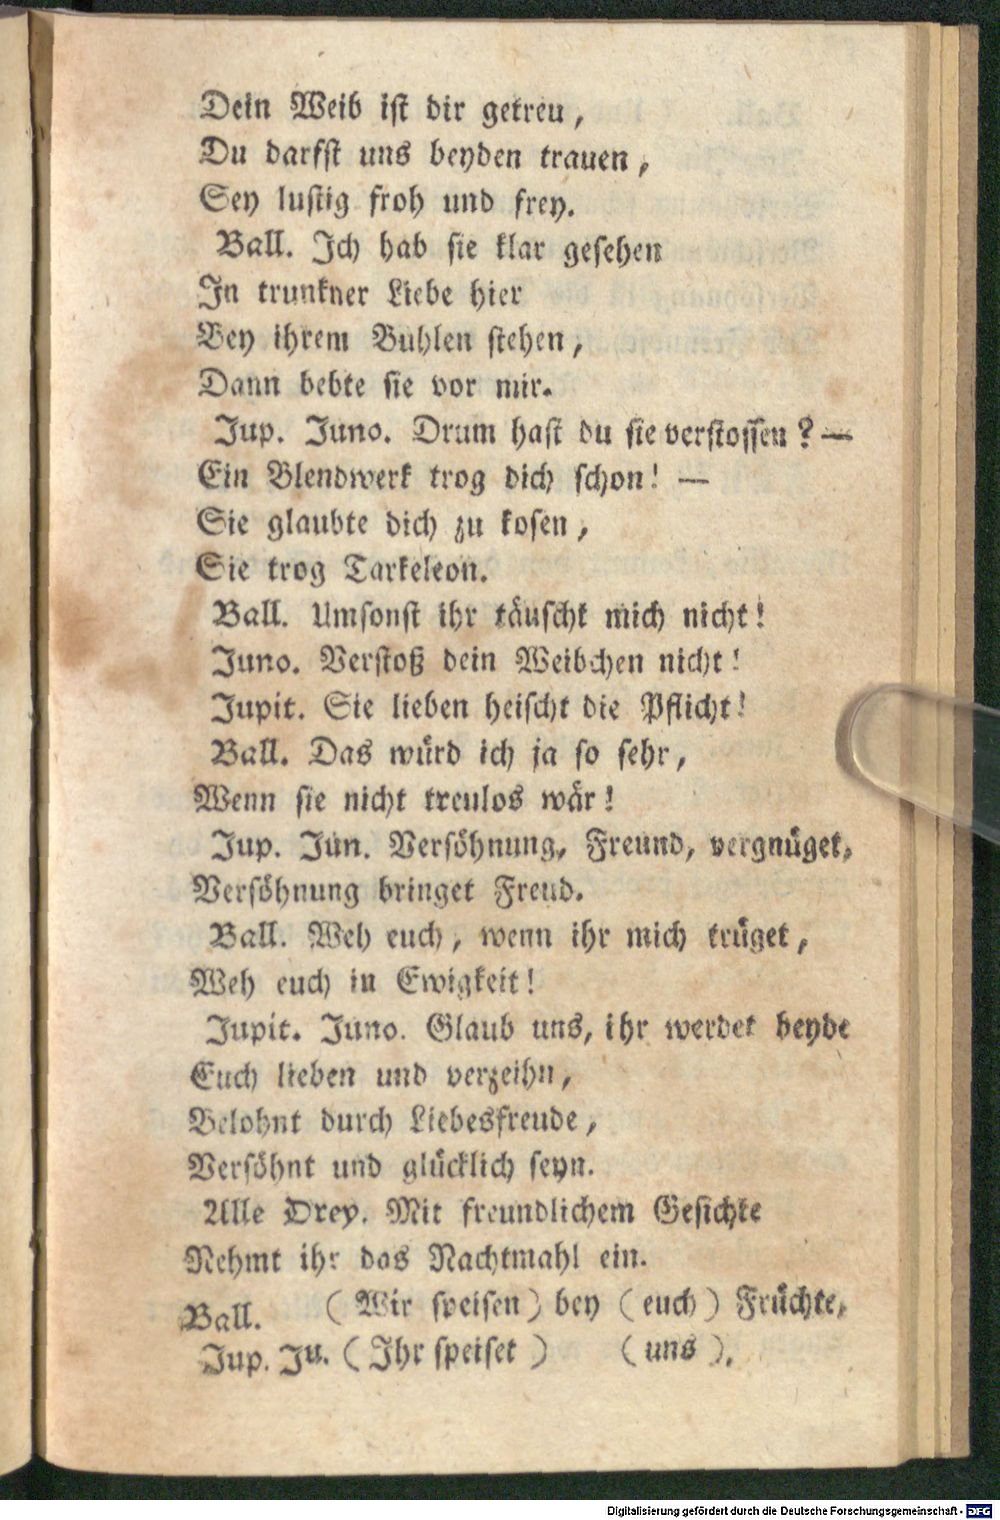 Dein Weib ist dir getreu,
Du darfst uns beyden trauen,
Sey lustig froh und frey.
Ball. Ich hab sie klar gesehen
In trunkner Liebe hier
Bey ihrem Buhlen stehen,
Dann bebte sie vor mir.
Jup. Juno. Drum hast du sie verstossen? —
Ein Blendwerk trog dich schon! —
Sie glaubte dich zu kosen,
Sie trog Tarkeleon.
Ball. Umsonst ihr täuscht mich nicht!
Juno. Verstoß dein Weibchen nicht!
Jupit. Sie lieben heischt die Pflicht!
Ball. Das würd ich ja so sehr,
Wenn sie nicht treulos wär!
Jup. Jun. Versöhnung, Freund, vergnüget,
Versöhnung bringet Freud.
Ball. Weh euch, wenn ihr mich trüget,
Weh euch in Ewigkeit!
Jupit. Juno. Glaub uns, ihr werdet beyde
Euch lieben und verzeihn,
Belohnt durch Liebesfreude,
Versöhnt und glücklich seyn.
Alle Drey. Mit freundlichem Gesichte
Nehmt ihr das Nachtmahl ein.
Ball. (Wir speisen) bey (euch) Früchte,
Jup. Ju. (Ihr speiset) (uns),
Digitalisierung gefördert durch die Deutsche Forschungsgemeinschaft - DFG